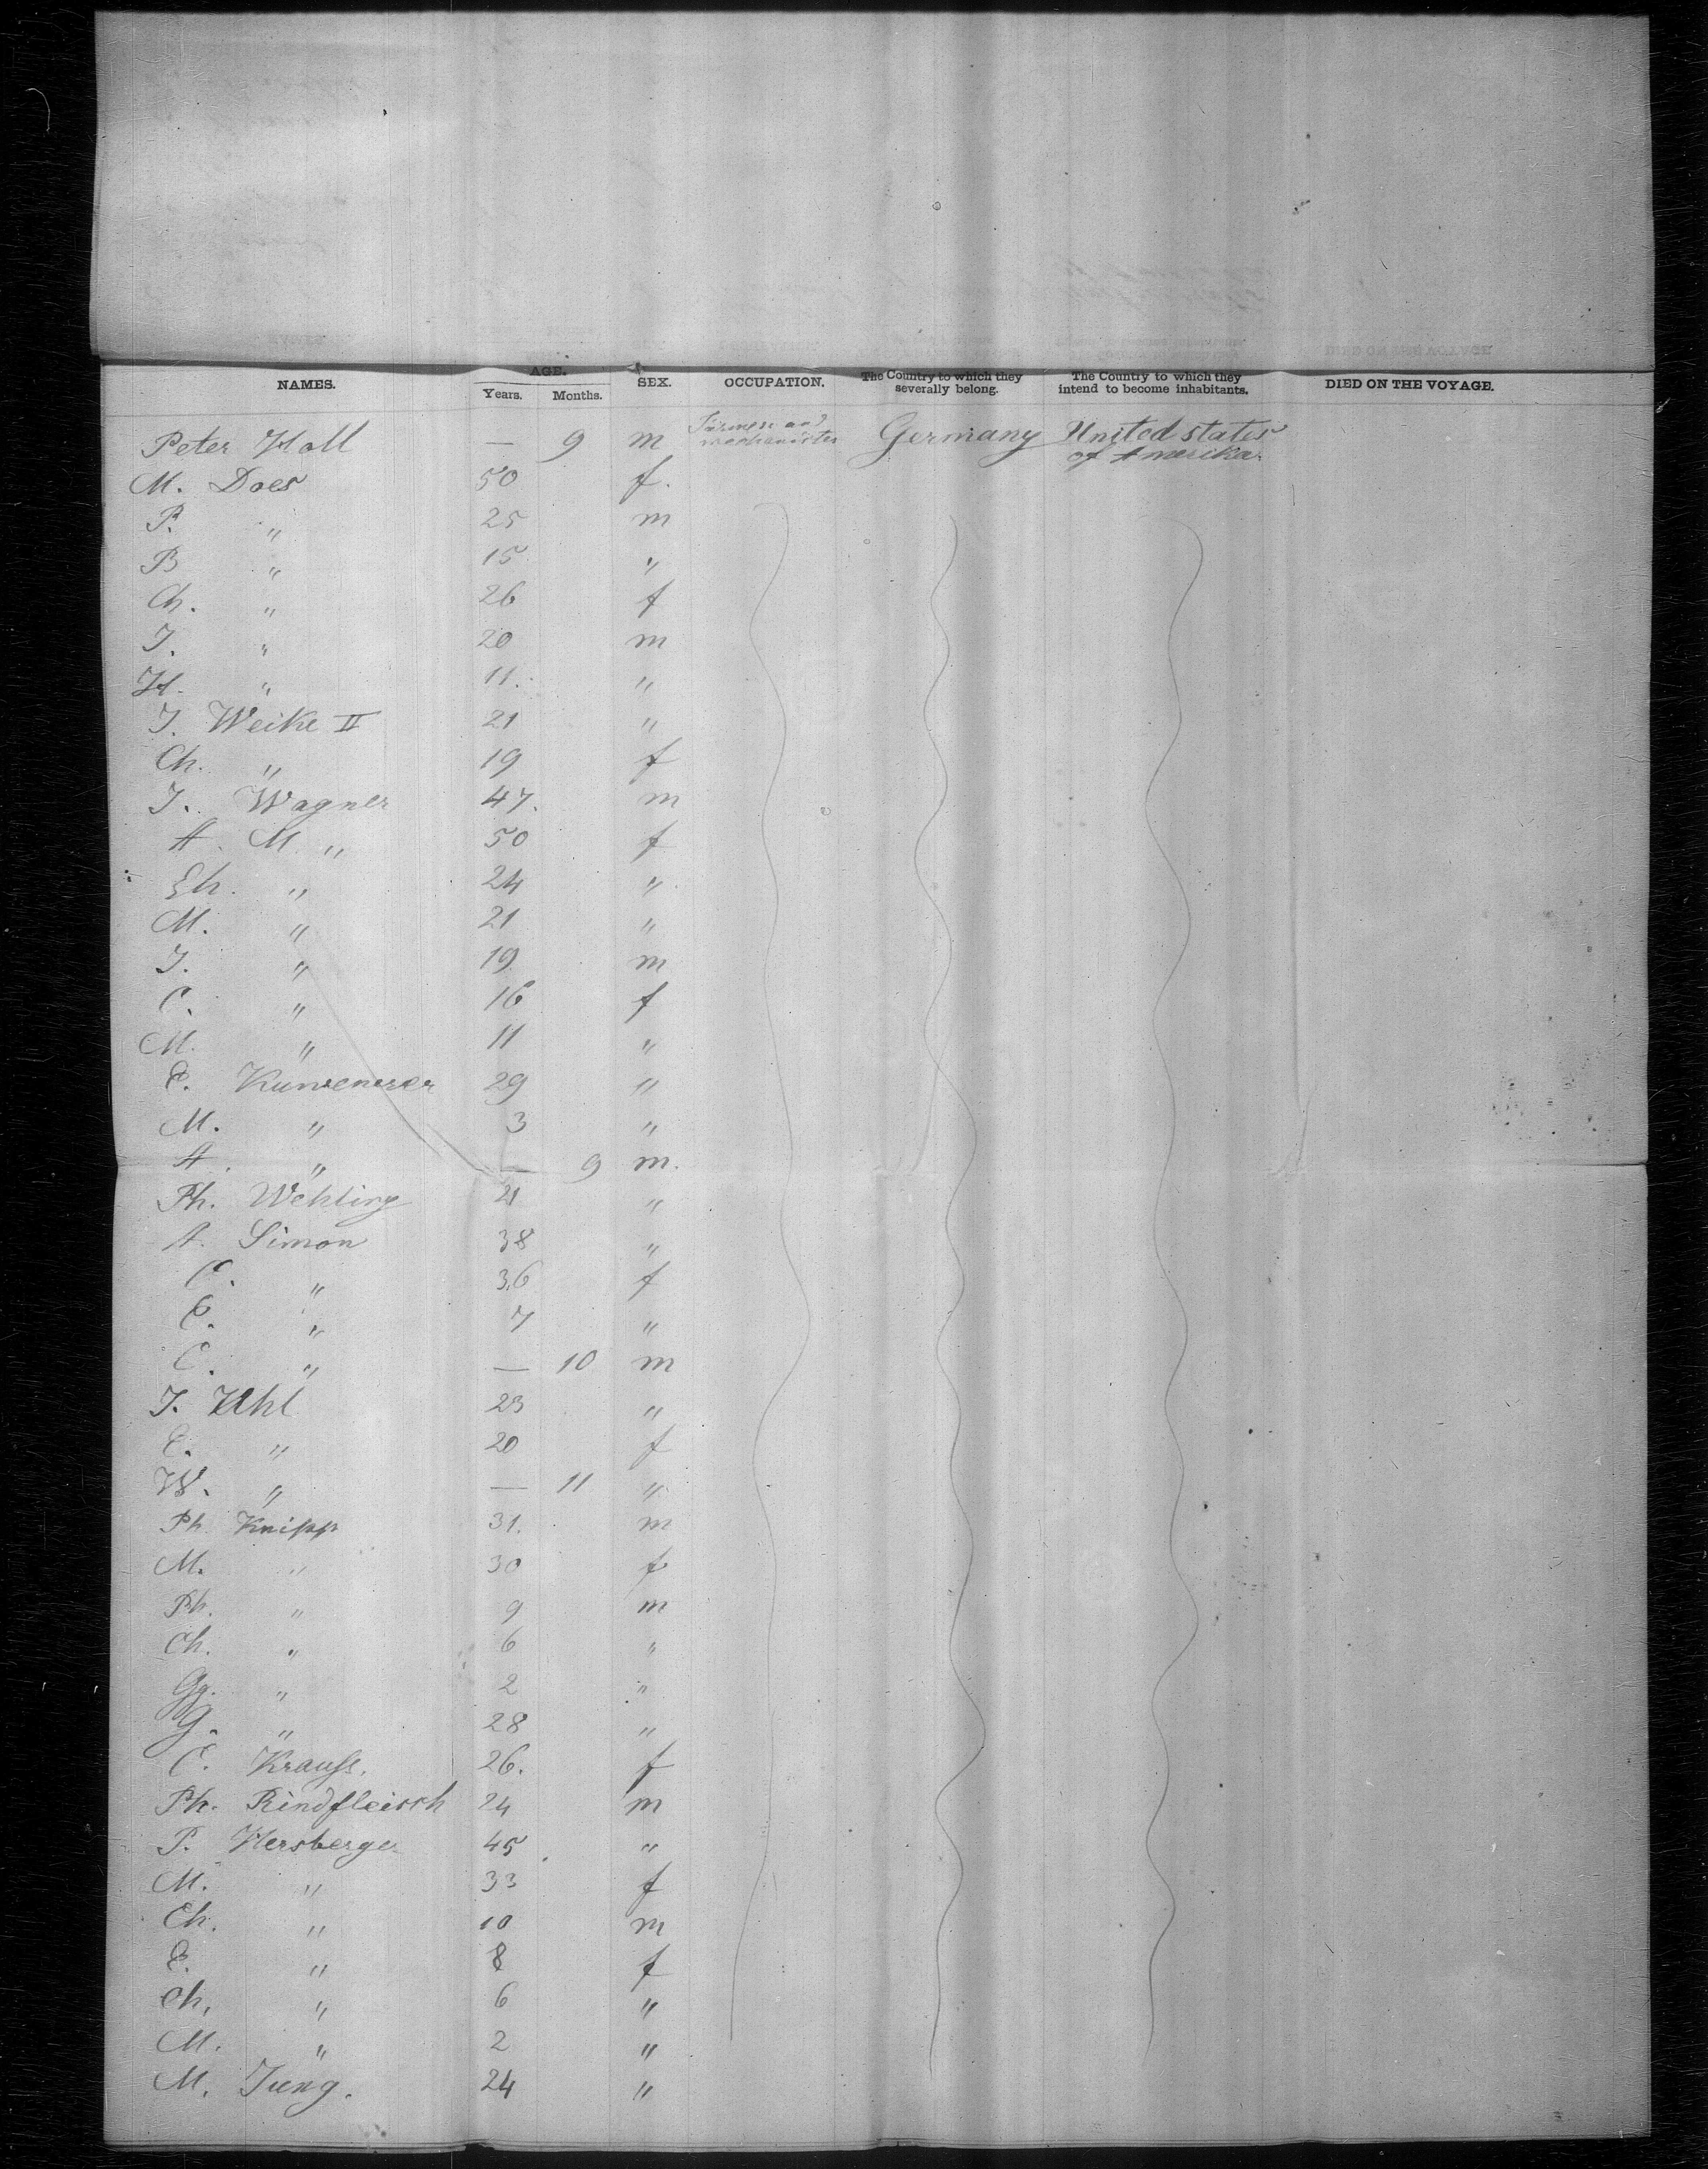 NAMES. AGE. Years. Months. SEX. OCCUPATION. The Country to which they severally belong. The Country to which they intend to become inhabitants. DIED ON THE VOYAGE.
Peter Holl — 9 m Farmers and Germany United states of Amerika.
M. Does 50 f.
P. " 25 m
B " 15 "
Ch. " 26 f
J. " 20 m
H. " 11. "
J. Weike II 21 "
Ch. " 19 f
J. Wagner 47. m
A. M. " 50 f
Eh. " 24 "
M. " 21 "
J. " 19 m
C. " 16 f
M. " 11 "
E. 29 "
M. " 3 "
A. " — 9 m.
Ph. Wehling 21 "
A. Simon 38 "
C. " 36 f
E. " 7 "
C. " — 10 m
J. Uhl 23 "
E. " 20 f
W. " — 11 "
Ph. Knipp 31. m
M. " 30 f
Ph. " 9 m
Ch. " 6 "
Gg. " 2 "
G. " 28 "
C. Krauß. 26. f
Ph. Rindfleisch 24 m
P. Hersberger 45 "
M. " 33 f
Ch. " 10 m
E. " 8 f
Ch, " 6 "
M. " 2 "
M. Jung. 24 "